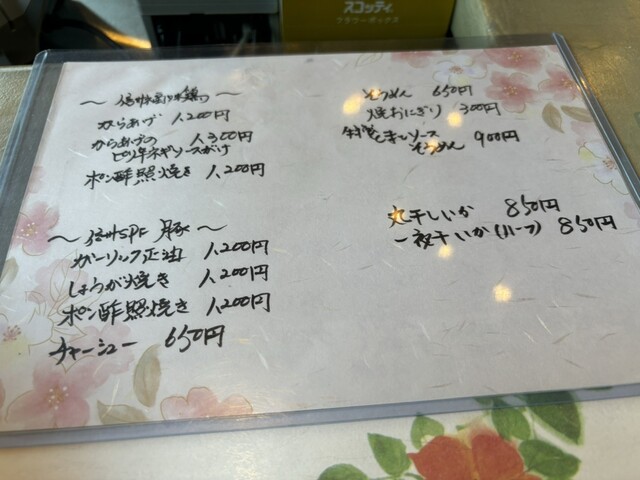 スコッティ
フラワーボックス
～ 信州 鶏 ～
からあげ 1,200円
からあげの 1,300円
ピリ辛ネギソースがけ
ポン酢照焼き 1,200円
～ 信州SPF 豚 ～
ガーリック正油 1,200円
しょうが焼き 1,200円
ポン酢照焼き 1,200円
チャーシュー 650円
そうめん 650円
焼おにぎり 300円
特製ごまソース 900円
そうめん
丸干しいか 850円
一夜干いか(ハーフ) 850円